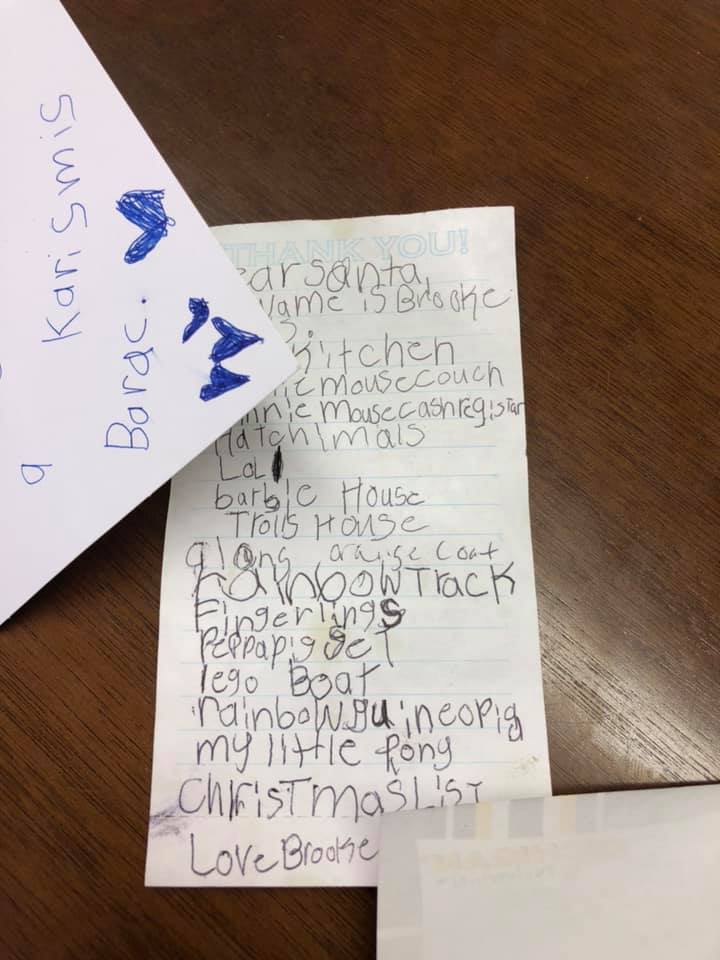 Karismis
Borqc.
THANK YOU!
ear santa,
Name is Brooke
S.
kitchen
ie mousecouch
innie mousecashregistar
Hatchimals
LoL
barbie House
Trolls House
a long oraige coat
RainbowTrack
Fingerlings
Peppapig Set
lego Boat
rainbow guineopig
my little pony
christmas List
Love Brooke